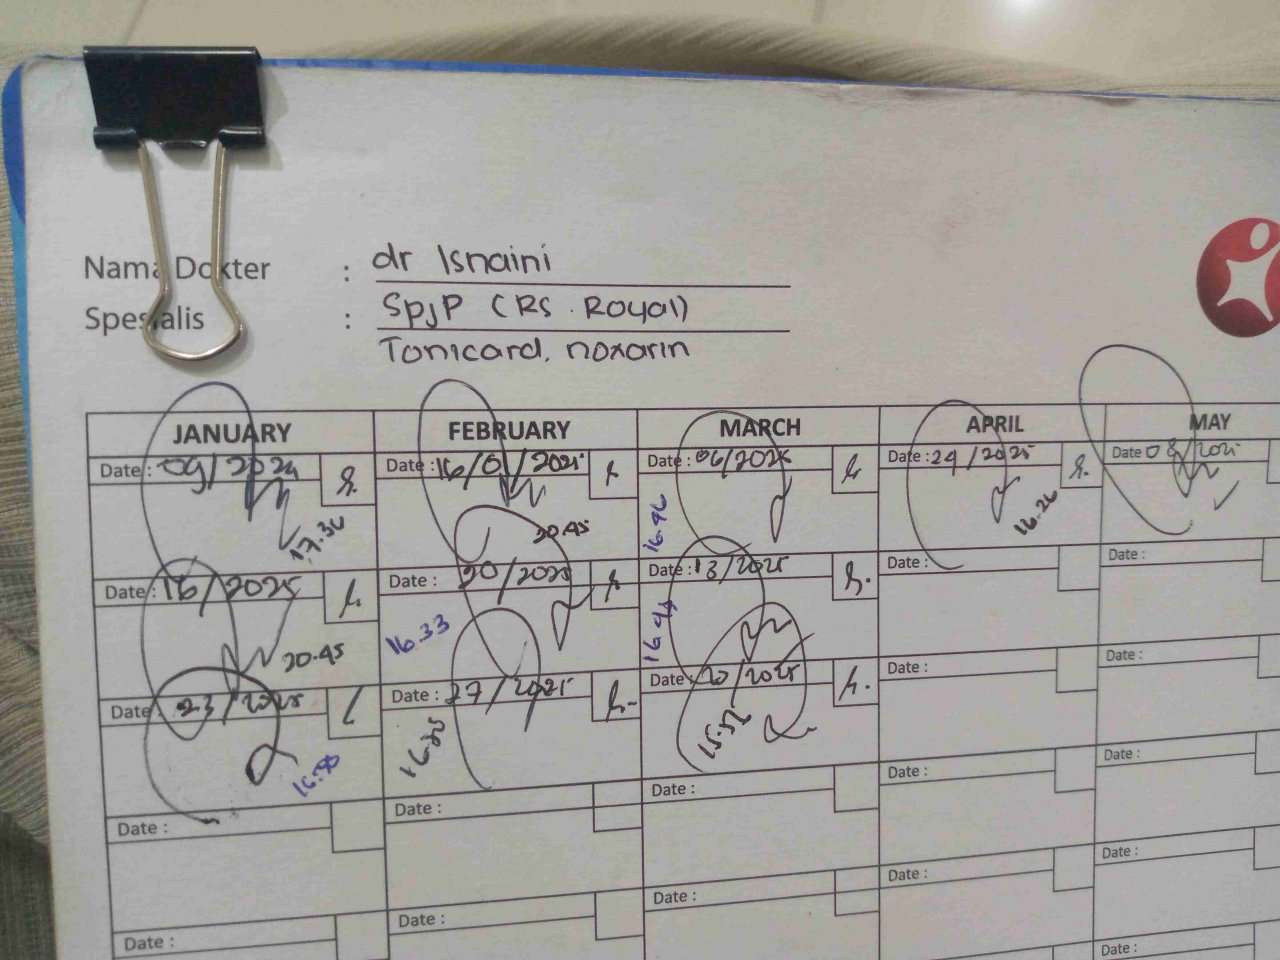 Nama Dokter : dr Isnaini
Spesialis : SpJP (RS. Royal)
Tonicard, noxarin
JANUARY FEBRUARY MARCH APRIL MAY
Date : 09/2024 Date : 16/01/2025 Date : 06/2025 Date : 24/2025 Date 08/2025
17.36 20.45 16.46 16.26
Date : 16/2025 Date : 20/2025 Date : 13/2025 Date : Date :
20.45 16.33 16.44
Date : 23/2025 Date : 27/2025 Date : 20/2025 Date : Date :
16.25 15.52
Date : Date : Date : Date : Date :
Date : Date : Date : Date : Date :
Date :